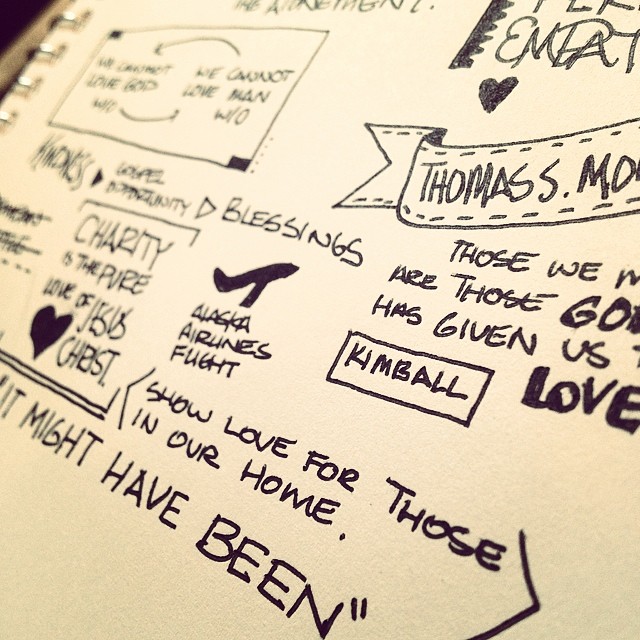 THE ATONEMENT.
WE CANNOT
LOVE GOD
W/O
WE CANNOT
LOVE MAN
W/O
GOSPEL
OPPORTUNITY
BLESSINGS
THOMAS S. MO
CHARITY
IS THE PURE
LOVE OF JESUS
CHRIST.
ALASKA
AIRLINES
FLIGHT
THOSE WE M
ARE THOSE GOD
HAS GIVEN US T
LOVE
KIMBALL
SHOW LOVE FOR THOSE
IN OUR HOME.
IT MIGHT HAVE BEEN"